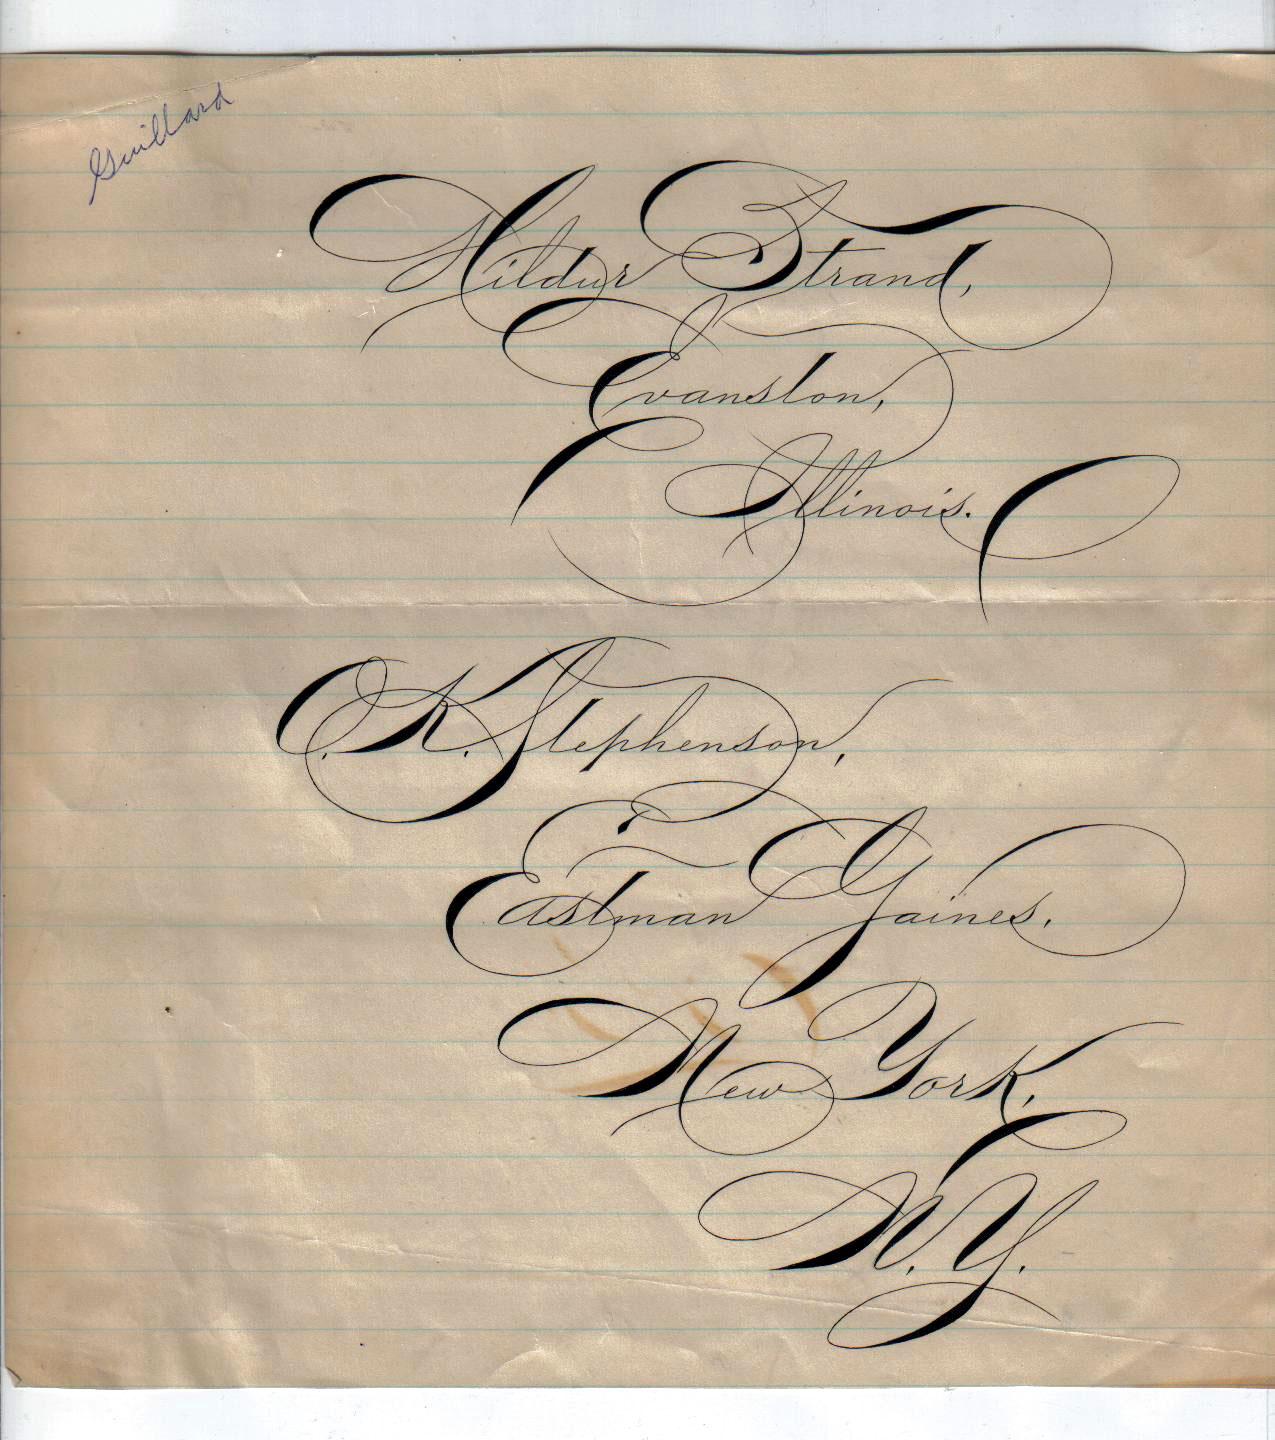 Guillard
Hildur Strand,
Evanston,
Illinois.
O. K. Stephenson,
Eastman Gaines.
New York,
N. Y.